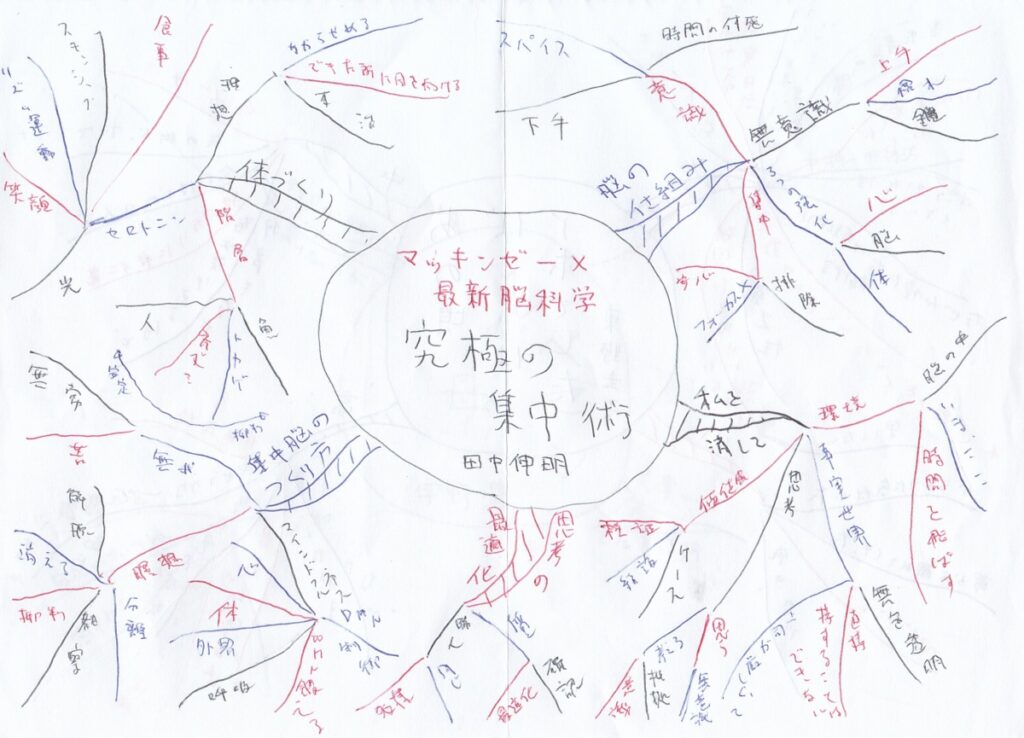 マッキンゼー×
最新脳科学
究極の
集中術
田中伸明
脳の
仕組み
意識
時間の付死
スパイス
下手
無意識
上手
鍵
3つの強化
心
脳
体
集中
フォーカス
排除
私を
消して
環境
脳の中
いま、ここ
時間を飛ばす
事実世界
無色透明
直接
接することは
できない
思考
思う
無意識
考える
価値観
結論
ケース
思考の
最適
化
質
確認
最適化
集中脳の
つくり方
マインドフルネス
心
体
外界
呼吸
瞑想
解脱
消える
俯瞰
分離
観察
無が
無
苦
体づくり
理想
できた所に目を向ける
セロトニン
食事
スキンシップ
リズム運動
笑顔
光
階層
人
ネズミ?
トカゲ
魚